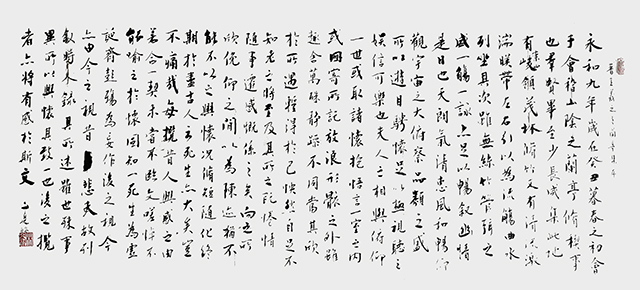 晉王羲之蘭亭集序
永和九年歲在癸丑暮春之初會
于會稽山陰之蘭亭脩禊事
也羣賢畢至少長咸集此地
有崇領茂林脩竹又有清流激
湍暎帶左右引以為流觴曲水
列坐其次雖無絲竹管弦之
盛一觴一詠亦足以暢敘幽情
是日也天朗氣清惠風和暢仰
觀宇宙之大俯察品類之盛
所以遊目騁懷足以極視聽之
娛信可樂也夫人之相與俯仰
一世或取諸懷抱悟言一室之內
或因寄所託放浪形骸之外雖
趣舍萬殊靜躁不同當其欣
於所遇蹔得於己怏然自足不
知老之將至及其所之既惓情
隨事遷感慨係之矣向之所
欣俛仰之間以為陳迹猶不
能不以之興懷況脩短隨化終
期於盡古人云死生亦大矣豈
不痛哉每攬昔人興感之由
若合一契未嘗不臨文嗟悼不
能喻之於懷固知一死生為虛
誕齊彭殤為妄作後之視今
亦由今之視昔悲夫故列
敘時人錄其所述雖世殊事
異所以興懷其致一也後之攬
者亦將有感於斯文